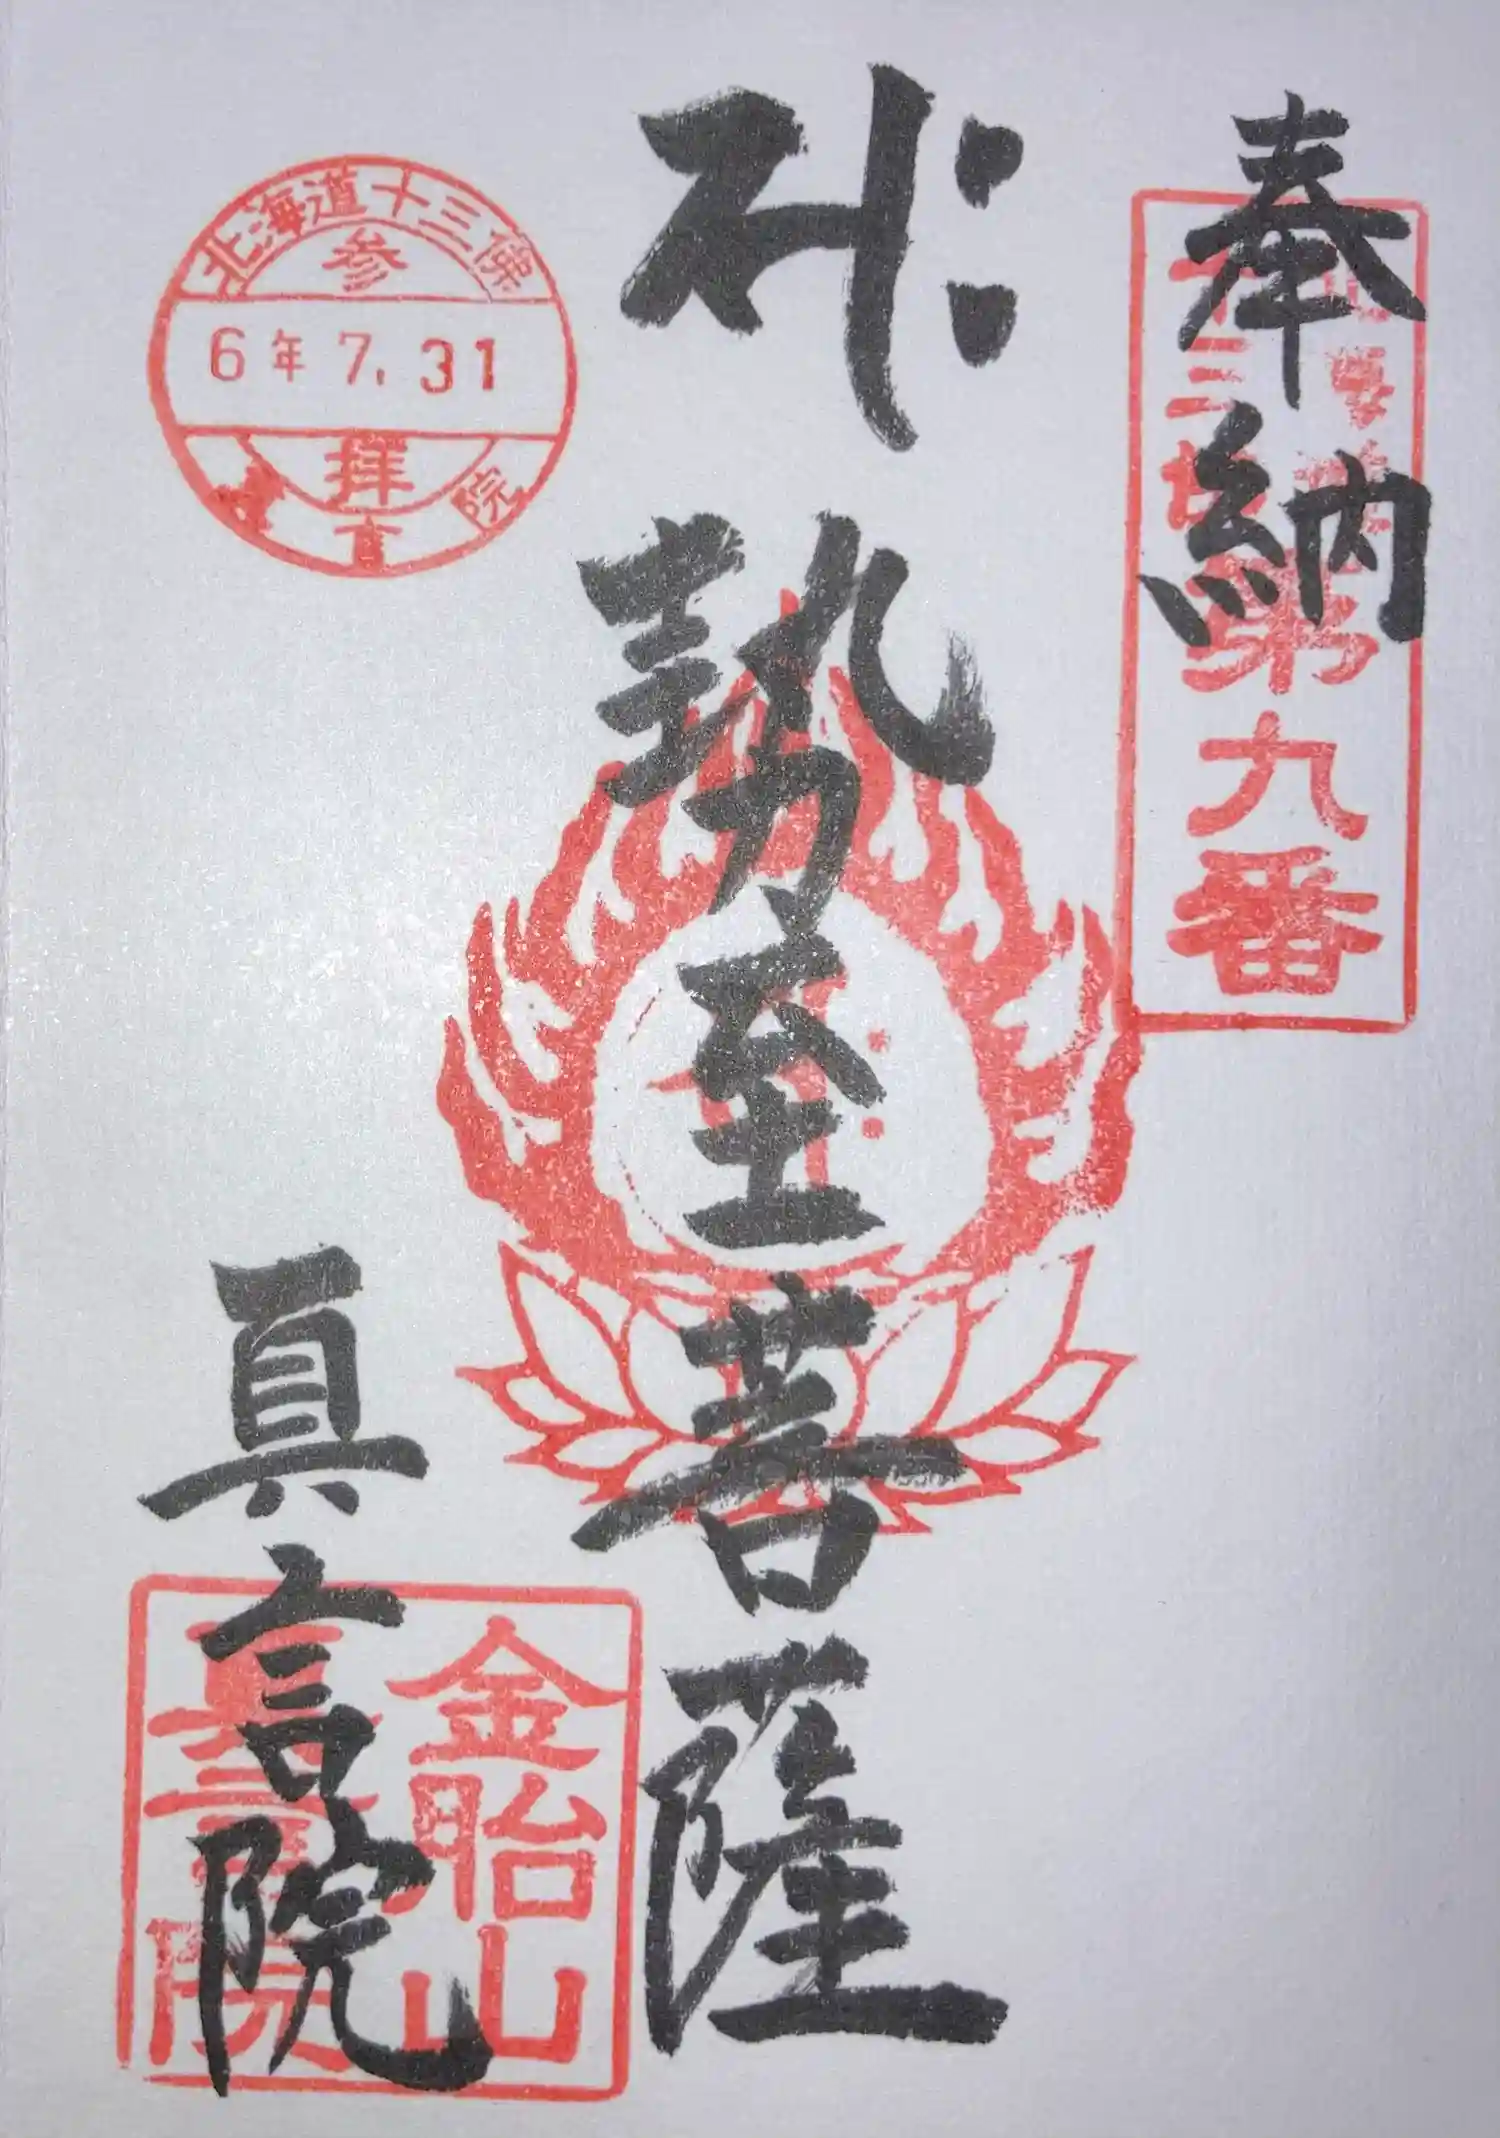 奉納
第九番
勢至菩薩
北海道十三佛
参
6年7.31
拝
真言院
真言院
金胎山
真言院